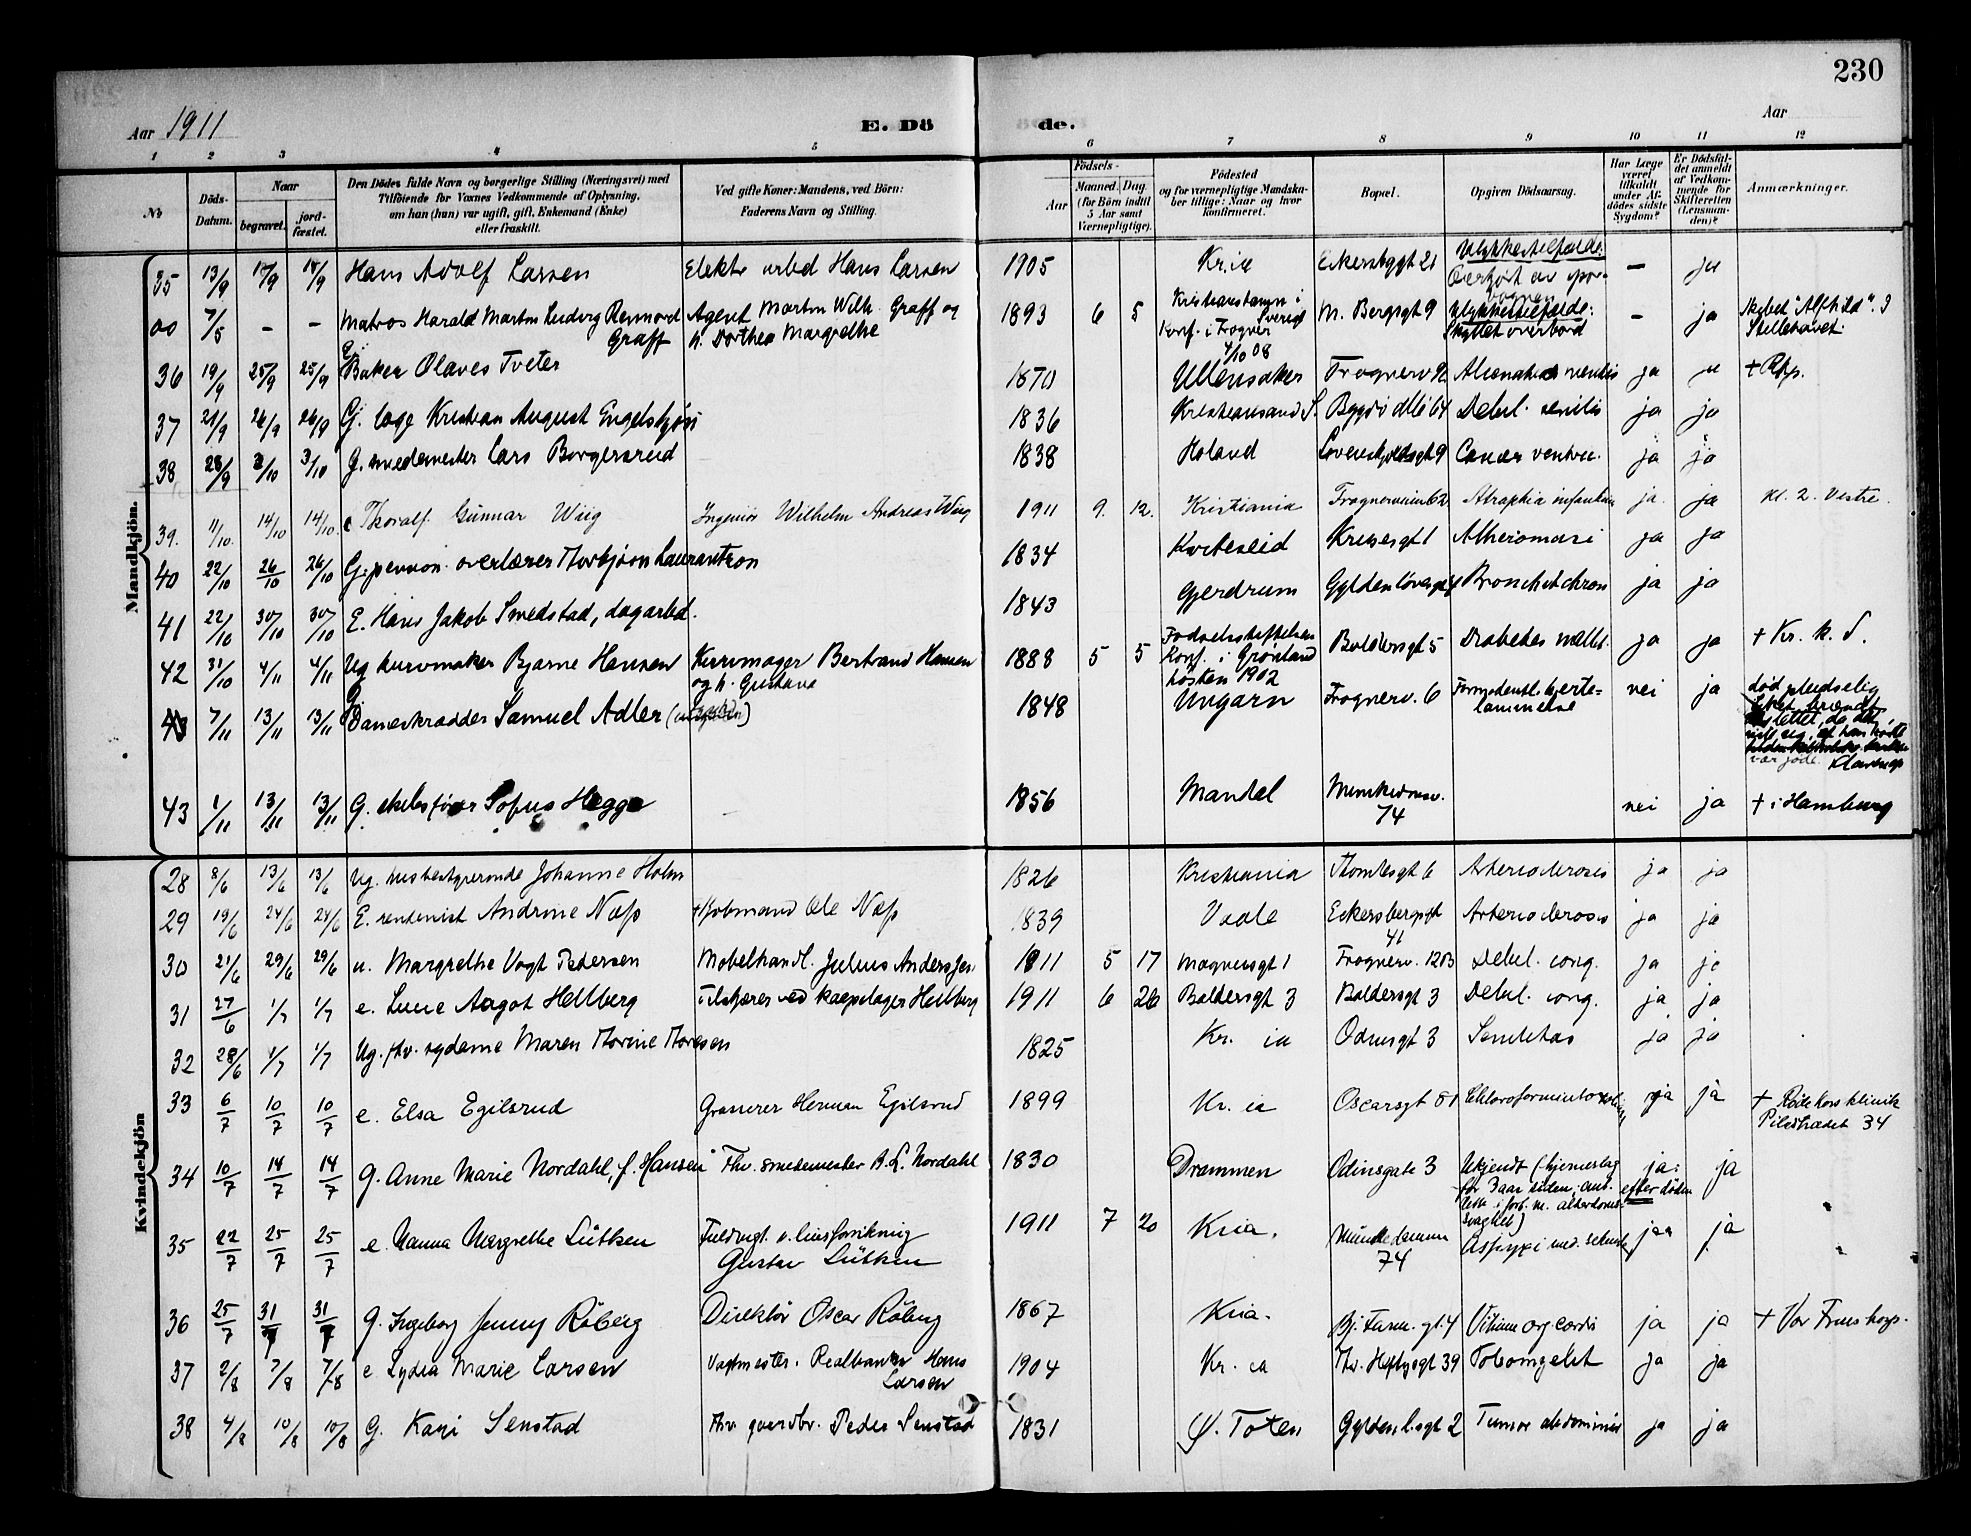 230
Aar 1911
E. Dö
de.
Aar
1 2 3 4 5 6 7 8 9 10 11 12
No
Döds-Datum.
Naar
begravet.
jord-fæstet.
Den Dödes fulde Navn og borgerlige Stilling (Næringsvei) med
Tilföiende for Voxnes Vedkommende af Oplysning,
om han (hun) var ugift, gift, Enkemand (Enke)
eller fraskilt.
Ved gifte Koner: Mandens, ved Börn:
Faderens Navn og Stilling.
Födsels-
Aar
Maaned. Dag.
(for Börn indtil
5 Aar samt
Værnepligtige).
Födested
og for værnepligtige Mandska-
ber tillige: Naar og hvor
konfirmeret.
Bopæl.
Opgiven Dödsaarsag.
Har Læge
været
tilkaldt
under Af-
dödes sidste
Sygdom?
Er Dödsfal-
det anmeldt
af Vedkom-
mende for
Skifteretten
(Lensman-
den)?
Anmærkninger.
Mandkjön.
35 13/9 18/9 18/9 Hans Adolf Larsen Elektr arbd Hans Larsen 1905 Kr.ia Eckersbggt 21 Ulykkestilfælde: Overkjørt av spor- — ja
00 7/5 — — Matros Harald Martin Ludvig Graff Agent Martin Wilh. Graff og h. Dorthea Margrethe 1893 6 5 Kristianstamn i Sverige Konf. i Frogner 4/10 08 M. Bergsgt 9 Ulykkestilfælde: Skyllet overbord — ja Skibet "Alfhild". I Stillehavet.
36 19/9 25/9 25/9 Baker Olaves Tveter 1870 Ullensaker Frognerv 92 ja ja
37 21/9 26/9 26/9 G. Kristian August 1836 Kristiansand S. Bygdø allé 64 Debil. senilis ja ja
38 28/9 3/10 3/10 G. smedemester Lars Borgersrud 1838 Høland Løvenskjoldsgt 9 Cancer ventric. ja ja
39. 11/10. 14/10 14/10. e Thoralf Gunnar Wiig Ingeniør Wilhelm Andreas Wiig 1911 9. 12. Kristiania Frognerveien 62 Atrophia infantum ja. ja Kl. 2. Vestre.
40 22/10 26/10 26/10 G. pension. overlærer Thorbjørn Laurantzon 1834 Kviteseid gt 1 ja ja
41 22/10 30/10 30/10 E. Hans Jakob Smedstad, dagarbd. 1843 Gjerdrum Gyldenløvesgt Bronchit chron ja ja
42 31/10 4/11 4/11 Ug kurvmaker Bjarne Hansen Kurvmager Bertrand Hansen og h. Gustava 1888 5 5 Fødselsstiftelsen Konf. i Grønland høsten 1902 Baldersgt 5 Diabetes mellit. ja ja + Kr. k. S.
43 7/11 13/11 13/11 G Dameskrædder Samuel Adler 1848 Ungarn Frognerv. 6 Formodentl. hjerte- lammelse nei ja død pludselig
var jøde.
43 1/11 13/11 13/11 G. skibsfører Sofus Hegge 1856 Mandal Munkedamsv. 74 nei ja + i Hamburg
Kvindekjön
28 8/6 13/6 13/6 Ug. husbestyrerinde Johanne Holm 1826 Kristiania Thomlesgt 6 Arteriosclerosis ja ja
29 19/6 24/6 24/6 E. rentenist Andrine Næss Kjøbmand Ole Næss 1839 Vaale Eckersbergsgt 41 Arteriosclerosis ja ja
30 21/6 29/6 29/6 u. Margrethe Vogt Pedersen Møbelhandl. Julius Anders 1911 5 17 Magnusgt 1 Frognerv. 12B Debil. cong. ja ja
31 27/6 1/7 1/7 e. Aagot Hellberg Tilskjærer ved Hellberg 1911 6 26 Baldersgt 3 Baldersgt 3 Debil. cong. ja ja
32 28/6 1/7 1/7 Ug. fhv. sydame Maren Thorine Thoresen 1825 Kr. ia Odinsgt 3 Senilitas ja ja
33 6/7 10/7 10/7 e. Elsa Egilsrud Grosserer Herman Egilsrud 1899 Kr. ia Oscarsgt 81 ja ja + Røde Kors klinik Pilestrædet 34
34 10/7 14/7 14/7 G. Anne Marie Nordahl, f. Hansen Fhv. smedemester A. L. Nordahl 1830 Drammen Odinsgate 3 Ukjendt (hjerneslag for 3 aar siden; i forb. m. alderdoms- svaghet) ja: efter døden ja
35 22/7 25/7 25/7 e. Nanna Margrethe Lütken Fuldmgt. v. livsforsikring Gustav Lütken 1911 7 20 Kria. Munkedamsv 74 ja ja
36 25/7 31/7 31/7 G. Ingeborg Jenny Røberg Direktør Oscar Røberg 1867 Kria. Bj. Farm. gt. 4 Vitium org. cordis ja ja + Vor Frues hosp.
37 2/8 7/8 7/8 e Lydia Marie Larsen Vagtmester. Hans Larsen 1904 Kr. ia Th. Heftyesgt 39 ja ja
38 4/8 10/8 10/8 G. Kari Senstad Fhv. gaardbr. Peder Senstad 1831 Ø. Toten Gyldenl.sgt 2 Tumor abdominis ja ja